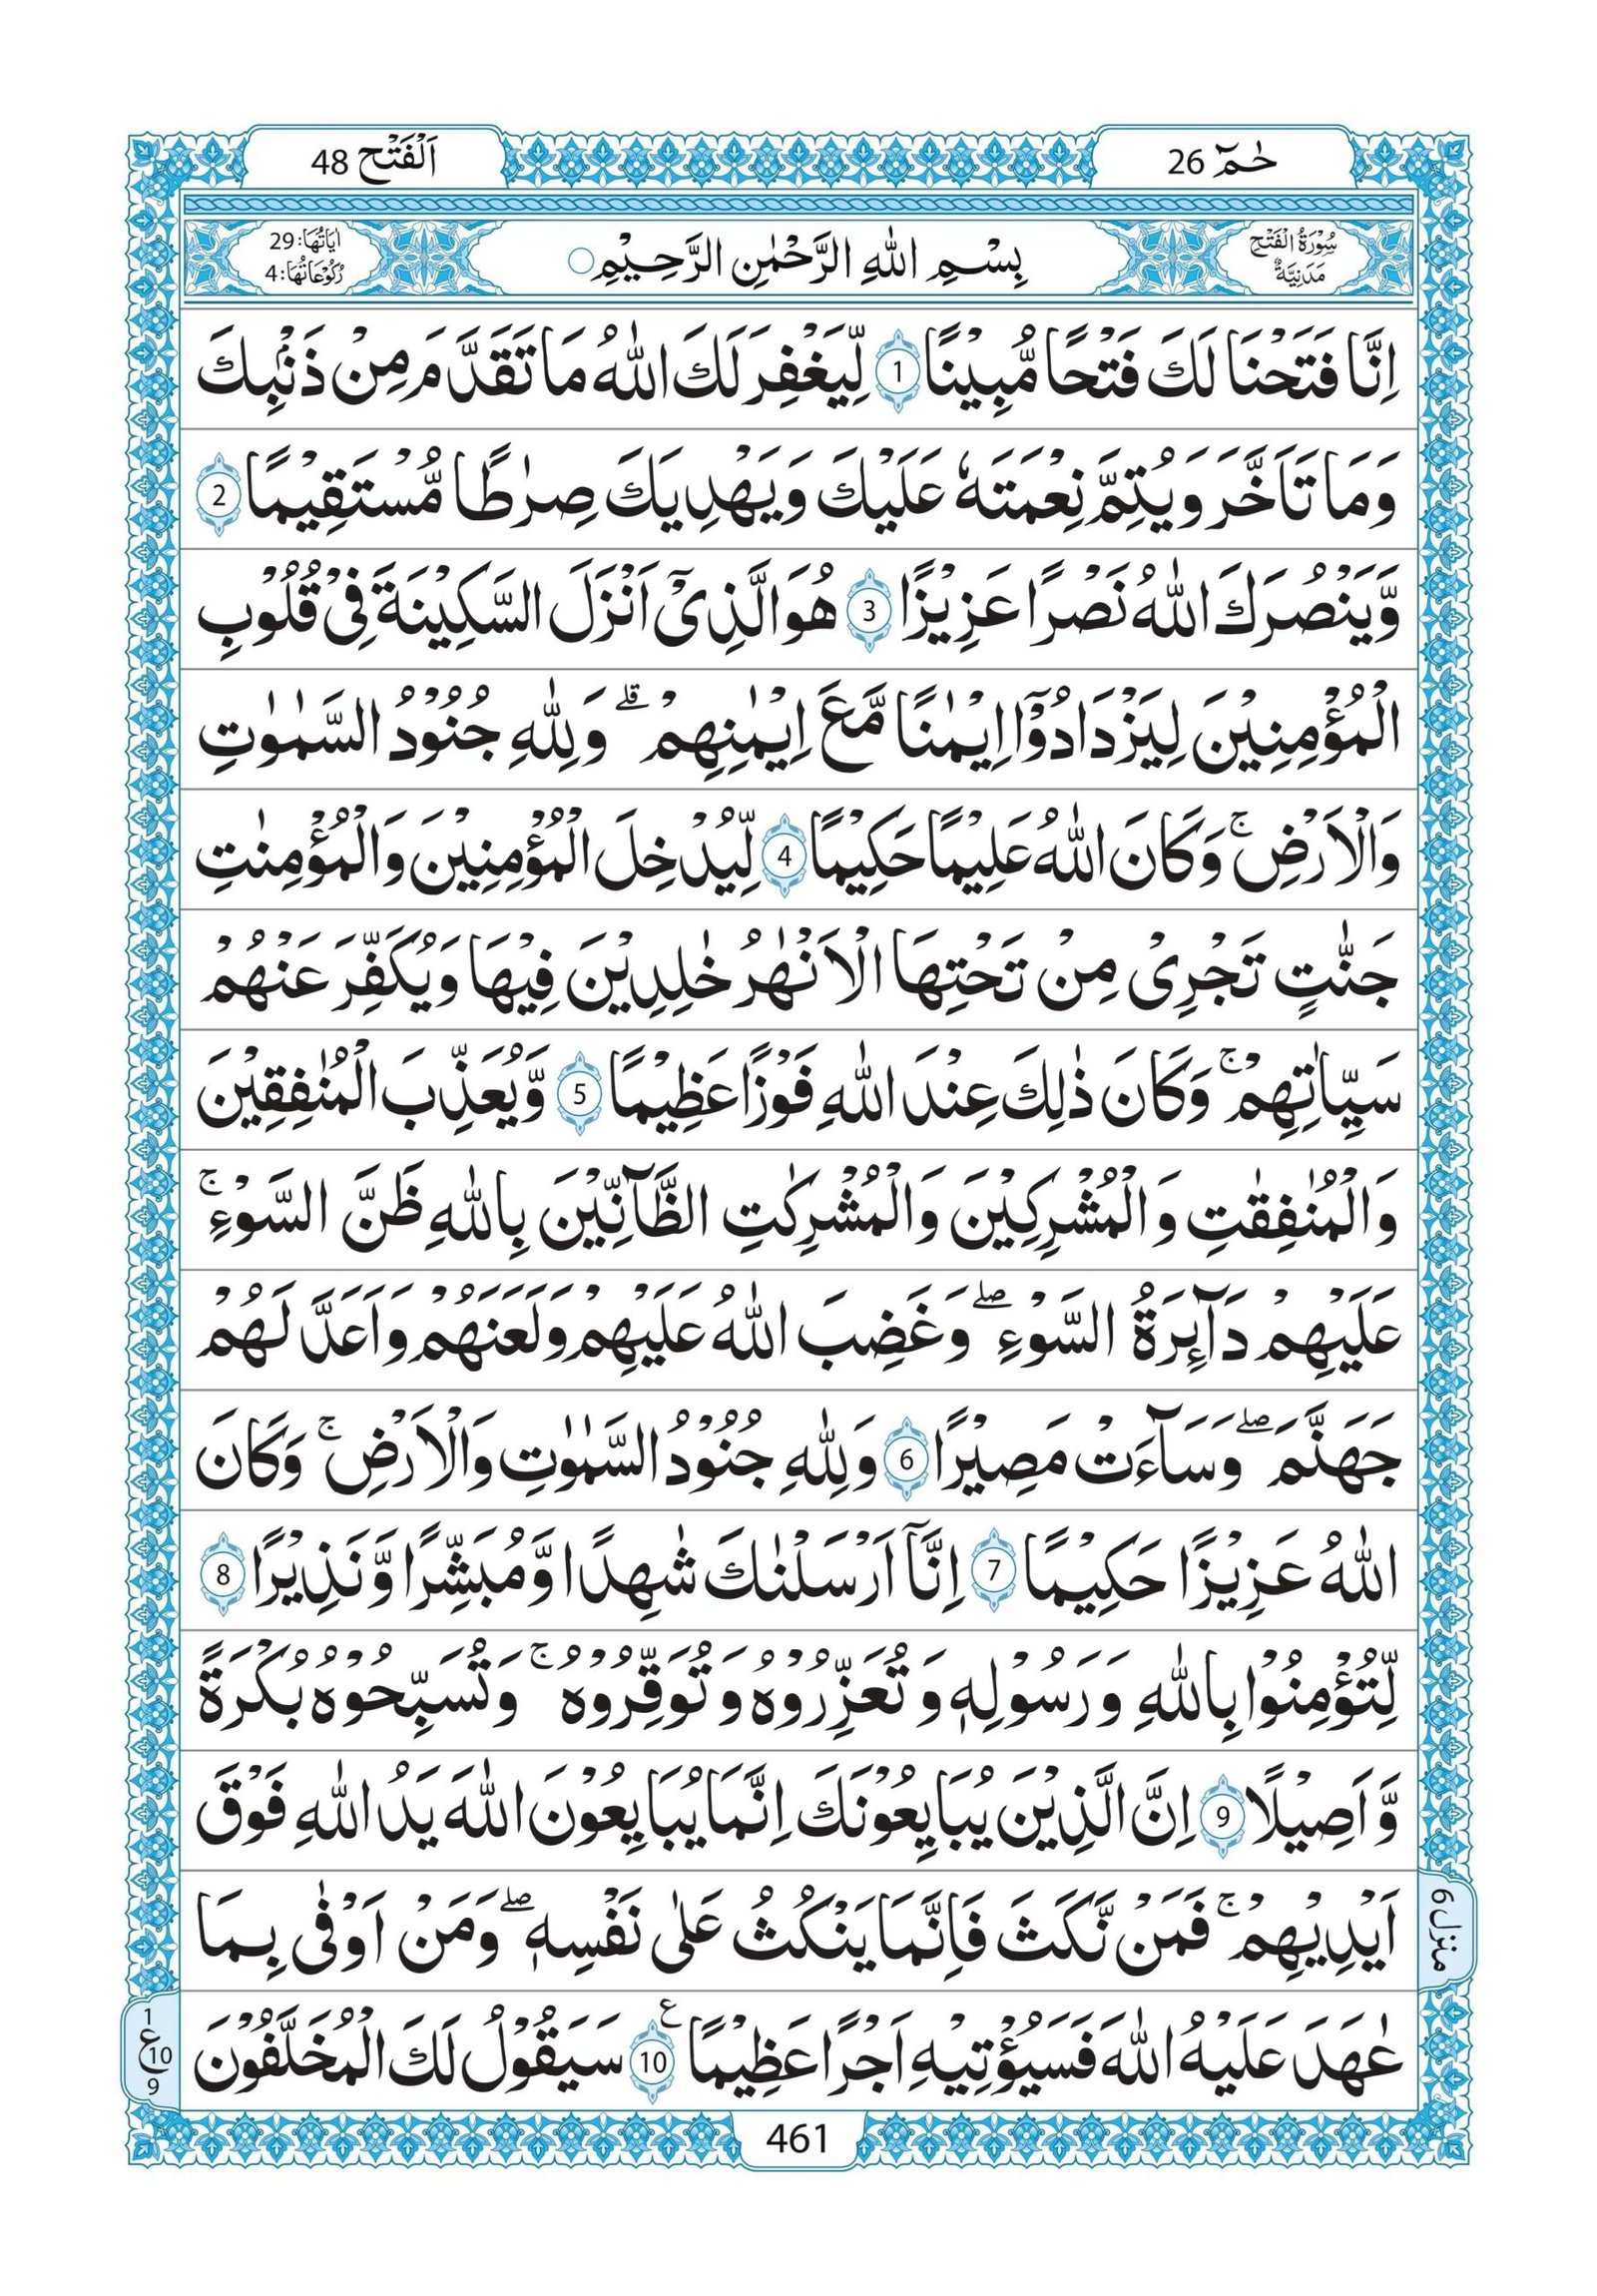 حٰمٓ 26
اَلْفَتْح 48
سُوْرَةُ الْفَتْحِ
مَدَنِيَّةٌ
بِسْمِ اللّٰهِ الرَّحْمٰنِ الرَّحِيْمِ
اٰيَاتُهَا: 29
رُكُوْعَاتُهَا: 4
اِنَّا فَتَحْنَا لَكَ فَتْحًا مُّبِيْنًا 1 لِّيَغْفِرَ لَكَ اللّٰهُ مَا تَقَدَّمَ مِنْ ذَنْۢبِكَ
وَمَا تَاَخَّرَ وَيُتِمَّ نِعْمَتَهٗ عَلَيْكَ وَيَهْدِيَكَ صِرٰطًا مُّسْتَقِيْمًا 2
وَّيَنْصُرَكَ اللّٰهُ نَصْرًا عَزِيْزًا 3 هُوَ الَّذِيْٓ اَنْزَلَ السَّكِيْنَةَ فِيْ قُلُوْبِ
الْمُؤْمِنِيْنَ لِيَزْدَادُوْٓا اِيْمٰنًا مَّعَ اِيْمٰنِهِمْ ۗ وَلِلّٰهِ جُنُوْدُ السَّمٰوٰتِ
وَالْاَرْضِ ۚ وَكَانَ اللّٰهُ عَلِيْمًا حَكِيْمًا 4 لِّيُدْخِلَ الْمُؤْمِنِيْنَ وَالْمُؤْمِنٰتِ
جَنّٰتٍ تَجْرِيْ مِنْ تَحْتِهَا الْاَنْهٰرُ خٰلِدِيْنَ فِيْهَا وَيُكَفِّرَ عَنْهُمْ
سَيِّاٰتِهِمْ ۚ وَكَانَ ذٰلِكَ عِنْدَ اللّٰهِ فَوْزًا عَظِيْمًا 5 وَّيُعَذِّبَ الْمُنٰفِقِيْنَ
وَالْمُنٰفِقٰتِ وَالْمُشْرِكِيْنَ وَالْمُشْرِكٰتِ الظَّآنِّيْنَ بِاللّٰهِ ظَنَّ السَّوْءِ ۚ
عَلَيْهِمْ دَآئِرَةُ السَّوْءِ ۖ وَغَضِبَ اللّٰهُ عَلَيْهِمْ وَلَعَنَهُمْ وَاَعَدَّ لَهُمْ
جَهَنَّمَ ۖ وَسَآءَتْ مَصِيْرًا 6 وَلِلّٰهِ جُنُوْدُ السَّمٰوٰتِ وَالْاَرْضِ ۚ وَكَانَ
اللّٰهُ عَزِيْزًا حَكِيْمًا 7 اِنَّآ اَرْسَلْنٰكَ شٰهِدًا وَّمُبَشِّرًا وَّنَذِيْرًا 8
لِّتُؤْمِنُوْا بِاللّٰهِ وَرَسُوْلِهٖ وَتُعَزِّرُوْهُ وَتُوَقِّرُوْهُ ۚ وَتُسَبِّحُوْهُ بُكْرَةً
وَّاَصِيْلًا 9 اِنَّ الَّذِيْنَ يُبَايِعُوْنَكَ اِنَّمَا يُبَايِعُوْنَ اللّٰهَ يَدُ اللّٰهِ فَوْقَ
اَيْدِيْهِمْ ۚ فَمَنْ نَّكَثَ فَاِنَّمَا يَنْكُثُ عَلٰى نَفْسِهٖ ۖ وَمَنْ اَوْفٰى بِمَا
عٰهَدَ عَلَيْهُ اللّٰهَ فَسَيُؤْتِيْهِ اَجْرًا عَظِيْمًا 10 ع سَيَقُوْلُ لَكَ الْمُخَلَّفُوْنَ
منزل 6
1
ع 10
9
461